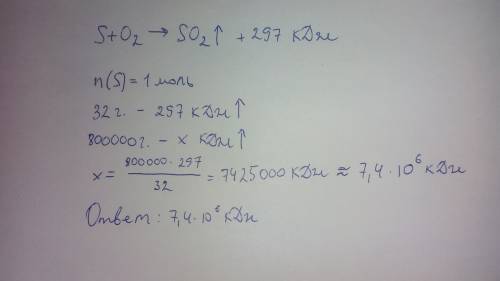 S+O₂ → SO₂↑ + 297 кДж
n(S) = 1 моль
32 г. – 297 кДж↑
800000 г. – x кДж↑
x = 800000 · 297 / 32 = 7425000 кДж ≈ 7,4 · 10⁶ кДж
Ответ: 7,4 · 10⁶ кДж